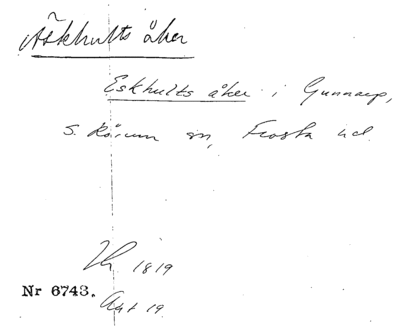 Äskhults åker
Eskhults åker i Gunnarp,
S. Rörum sn, Frosta hd.
1819
Nr 6743.
Akt 19